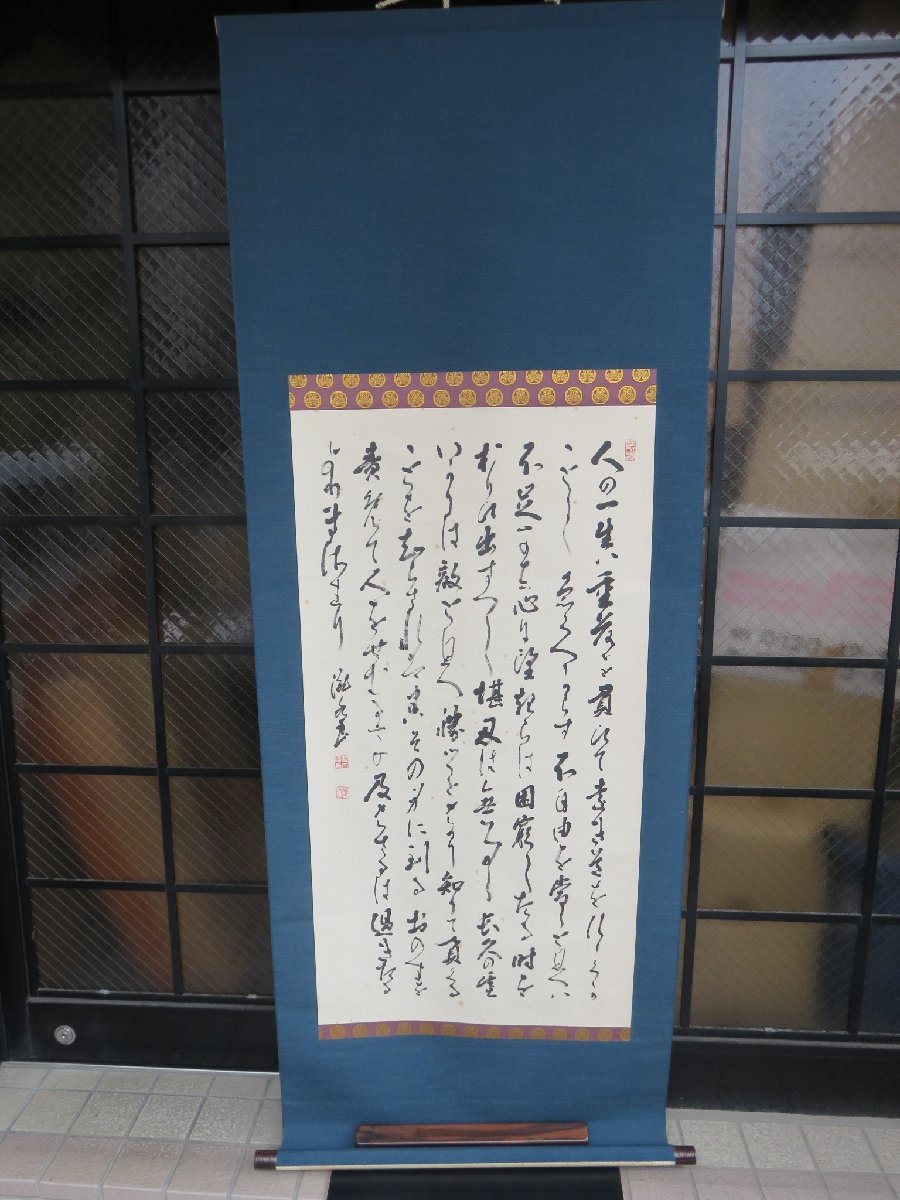 人の一生ハ重荷を負ひて遠き道を行くか
ことし いそくへからす 不自由を常と思へハ
不足なし 心に望起らは困窮したる時を
おもひ出すへし 堪忍は無事長久の基
いかりは敵と思へ 勝つことはかり知りて負くる
ことを知らされは害その身に到る おのれを
責めて人をせむるな 及はさるは過きたる
よりまされり